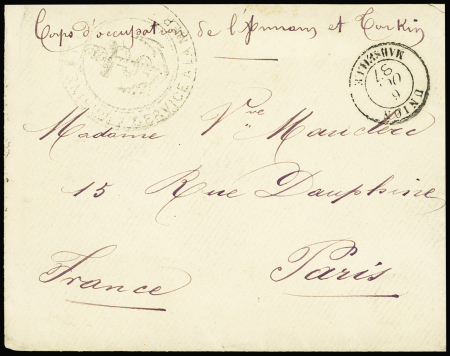 Corps d'occupation de l'Annam et Tonkin
SERVICE A LA MER
UNION MARSEILLE
6
OC
87
Madame Vve Mauclerc
15 Rue Dauphine
Paris
France